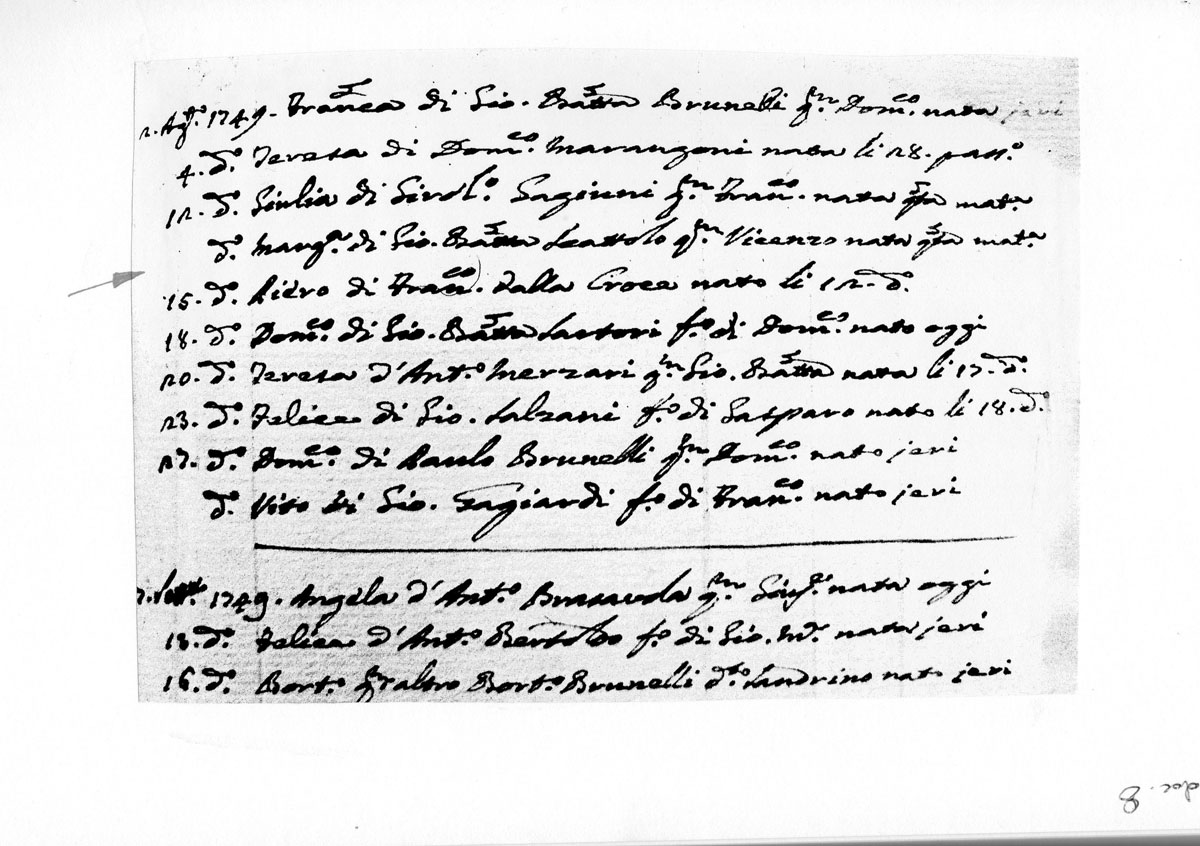 2. Agto. 1749. Franca di Gio. Batta Brunelli qm. Domco. nata jeri
4. do. Teresa di Domco. Marangoni nata li 28. passo.
12. do. Giulia di Girolo. Gagiuni qm. Franco. nata qsta mata.
do. Marga. di Gio. Batta Leattolo qm. Vicenzo nata qsta mata.
15. do. Piero di Franco. dalla Croce nato li 12. do.
18. do. Domco. di Gio. Batta Sartori fo. di Domco. nato oggi
20. do. Teresa d'Anto. Merzari qm. Gio. Batta nata li 17. do.
23. do. Felice di Gio. Salzani fo. di Gasparo nato li 18. do.
27. do. Domco. di Paulo Brunelli qm. Domco. nato jeri
do. Vito di Gio. Gagiardi fo. di Franco. nato jeri
7. Sette. 1749. Angela d'Anto. Brasavola qm. nata oggi
13. do. Felica d'Anto. Bertoldo fo. di Gio. Ma. nata jeri
16. do. Borto. altro Borto. Brunelli dto. Sandrino nato jeri
doc. 8